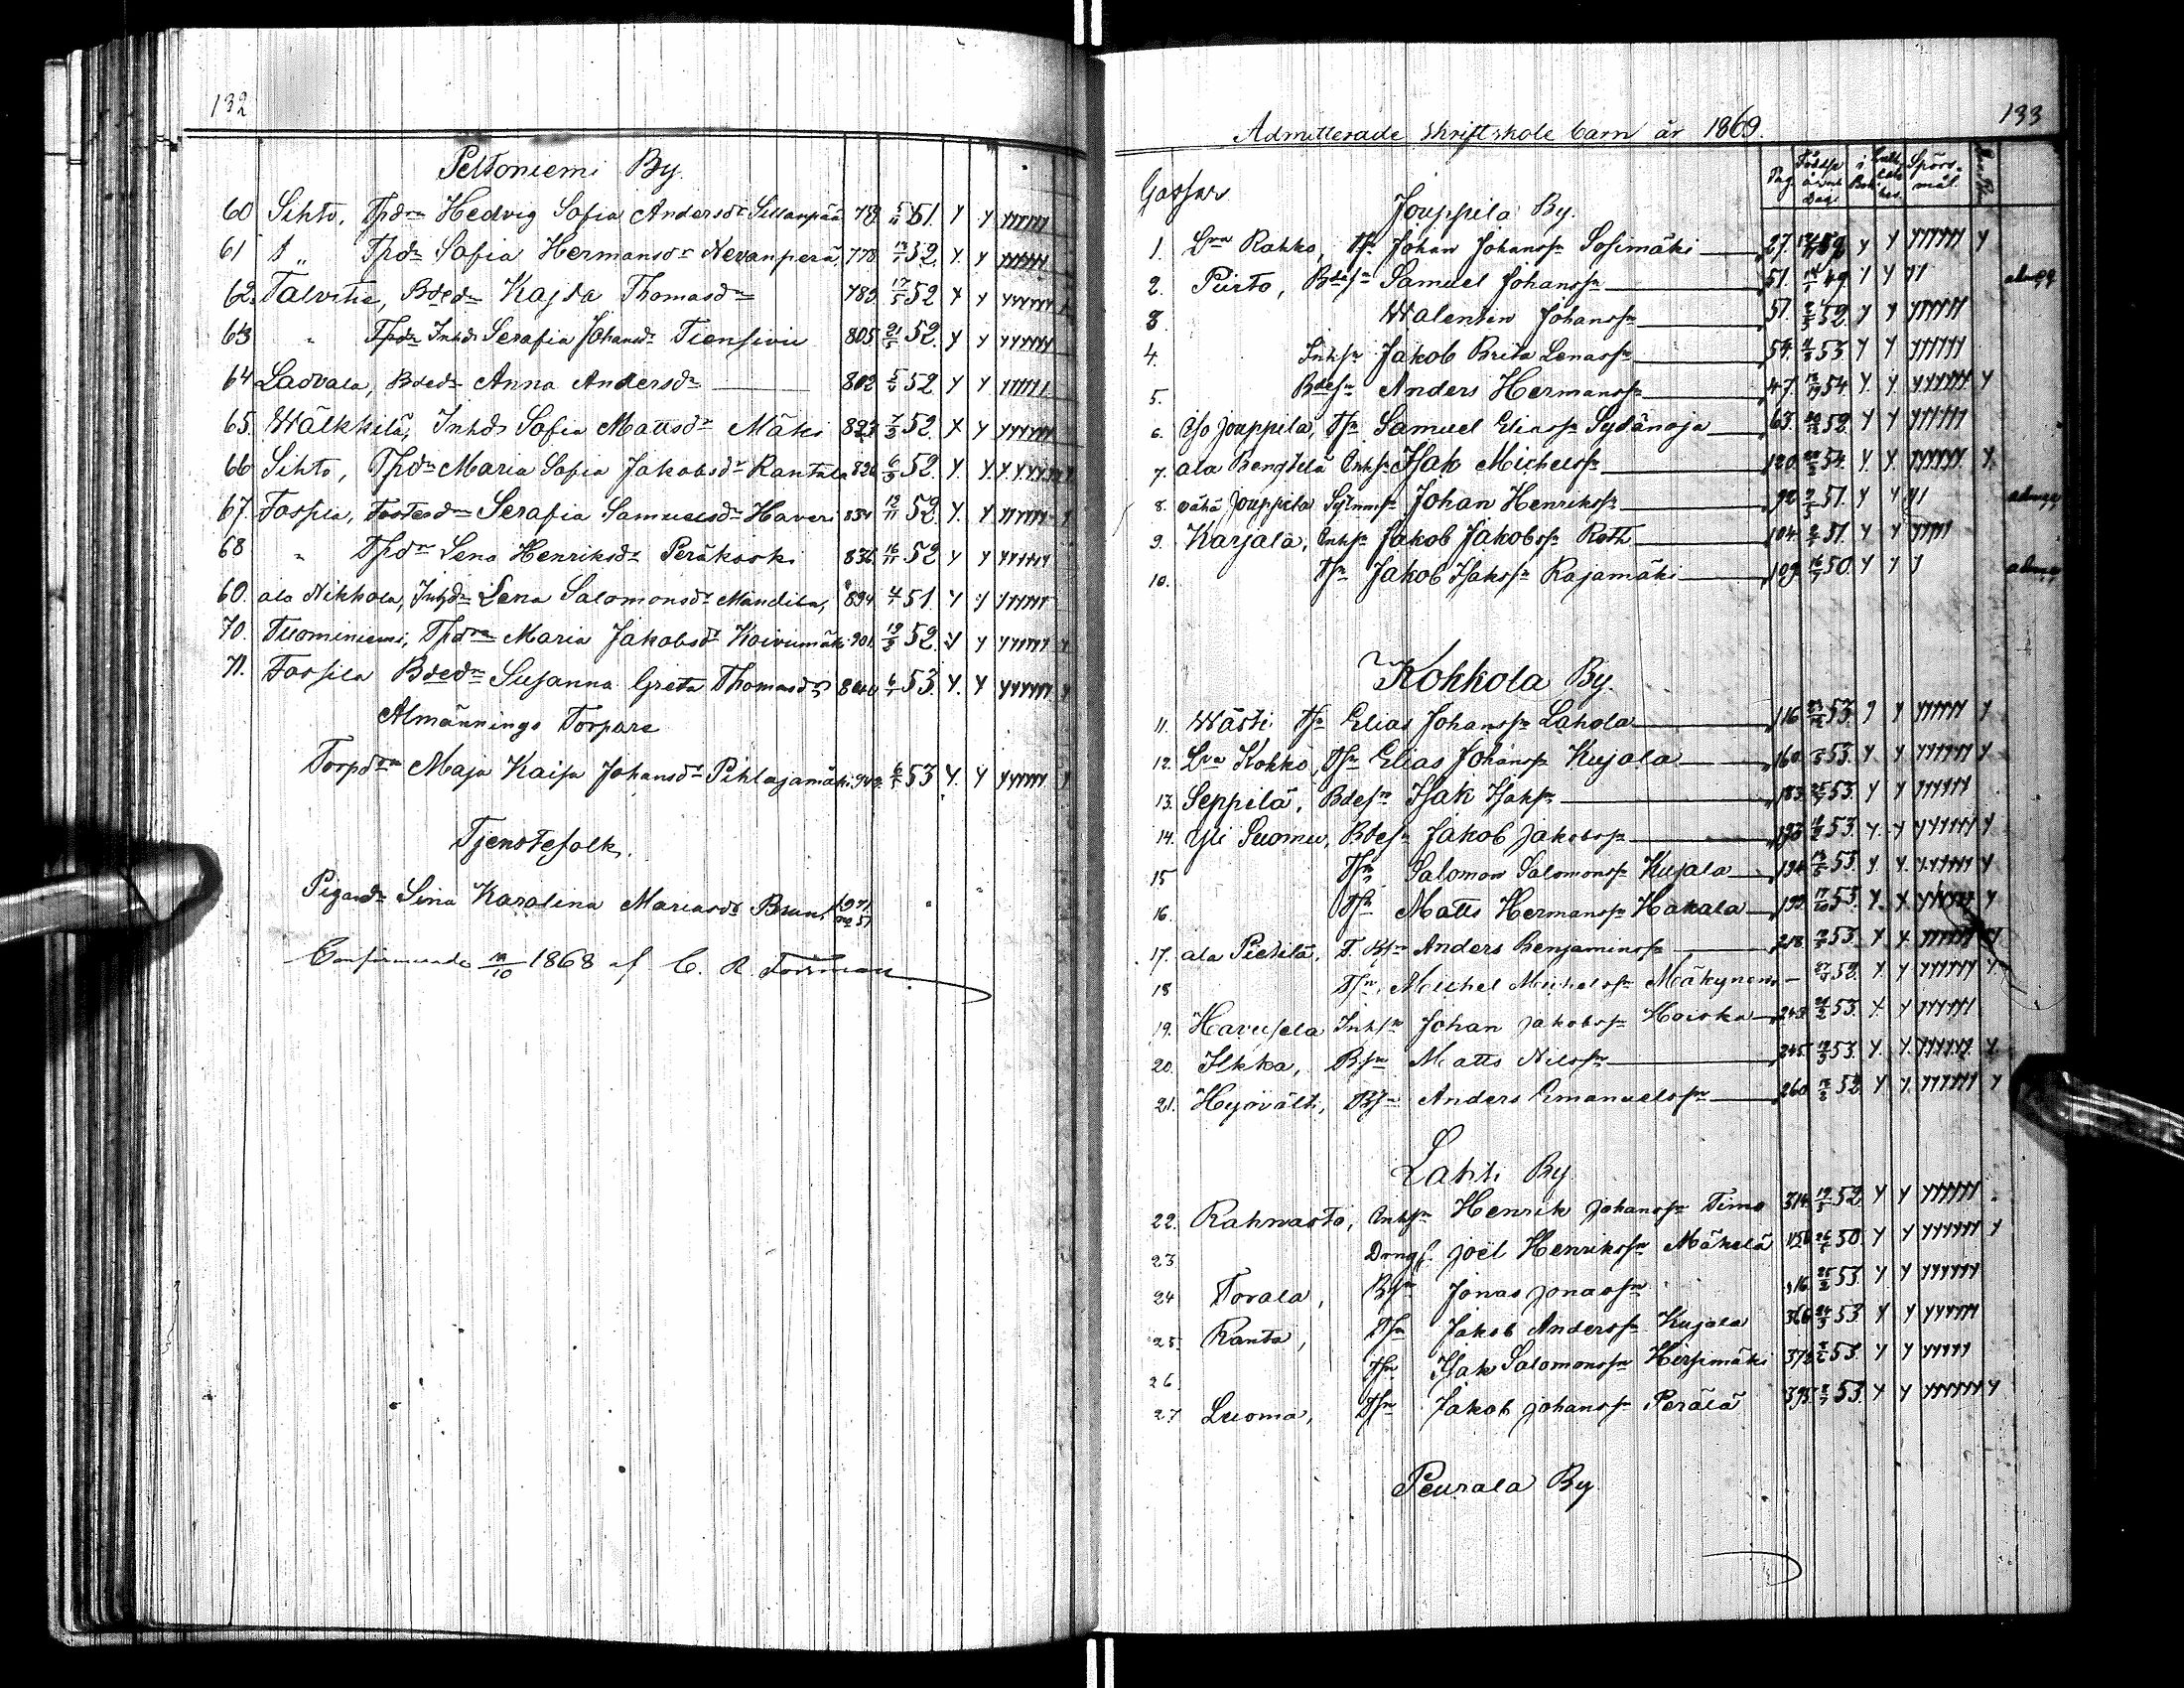 132
Peltoniemi By.
60 Sihto, Tpdr Hedvig Sofia Andersdr Sillanpää 78 5/11 51. y y yyyyy
61 " Tpdr Sofia Hermansdr Nevanperä, 778 52. y. y yyyyy
62. Talvitie, Bdedr Kajsa Thomasdr 783 17/5 52 y y yyyyyy
63 " Tpdr Inhdr Serafia Johansdr Tiensivu 805 21/5 52. y y yyyyyy
64 Ladvala, Bdedr Anna Andersdr 802 5/5 52 y y yyyyy
65. Wälkkilä, Inhdr Sofia Mattsdr Mäki 823 7/3 52. y y yyyyyy
66 Sihto, Tpdr Maria Sofia Jakobsdr Rantala 826 6/3 52. y. y. y.y.yyyy y
67. Fossila, Fosterdr Serafia Samuelsdr Haveri 834 13/11 52 y. y yyyyy y
68 " Tpdr Lena Henriksdr Peräkoski 836 16/11 52 y y yyyyy
60. ala Nikkola, Inhdr Lena Salomonsdr Mandila, 894 4/ 51. y y yyyyy
70. Tuominiemi, Tpdr Maria Jakobsdr Koivumäki 901 19/3 52. y y yyyyy y
71. Fossila Bdedr Susanna Greta Thomasdr 53. y. y yyyyyy y
Almännings Torpare
Torpdr Maja Kaisa Johansdr Pihlajamäki 6/1 53 y. y yyyyy y
Tjenstefolk.
Pigardr Lina Karolina Mariasdr Brun 51
Confirmerade 1868 af C. R. Forsman
133
Admitterade skriftskole barn år 1869.
Gossar
Pag. Födelse år och Dag i Bok Spörsmål
Jouppila By.
1. Lra Rahko, Tsn Johan Johanssn Sosimäki 27. y y yyyyyy y
2. Piirto, Bdesn Samuel Johanssn 51. 49 y y yy
3 Walentin Johanssn 51. 52 y y yyyyyy
4. Inhsn Jakob Brita Lenassn 54. 53 y y yyyyyy
5. Bdesn Anders Hermanssn 47. 54. y. y. yyyyyy y
6. Iso Jouppila, Tsn Samuel Eliassn Sydänoja 63. 52. y y yyyyyy
7. ala Bengtilä Inhsn Isak Michelssn 120. 54. y. y. yyyyyy. y.
8. vähä Jouppila Johan Henrikssn 92 51. y y yy
9. Karjala, Inhsn Jakob Jakobssn Roth 104. 51. y y yyyyy
10. Tsn Jakob Isakssn Rajamäki 109 16/7 50. y y y
Kokkola By.
11. Wästi Tsn Elias Johanssn Lahola 116 53. y y yyyyyy y
12. Lra Kokko, Tsn Elias Johanssn Kujala 160. 53. y y yyyyyy y
13. Seppilä, Bdesn Isak Isakssn 183 53. y y yyyyyy
14. Yli Luomu, Bdesn Jakob Jakobssn 193 53. y. y yyyyyy y
15 Tsn Salomon Salomonssn Kujala 194 53. y y. yyyyyy y
16. Tsn Matts Hermanssn Hakala 199 17/10 53. y. y. yyyyyy y
17. ala Pietilä, Anders Benjaminssn 218 53. y y. yyyyyy y
18 Tsn, Michel Michelssn Mäkynen 52. y. y yyyyyy y
19. Havusela Inhsn Johan Jakobssn Hoiska 243 53. y. y yyyyyy
20. Ilkka, Bsn Matts Nilssn 245 53. y. y. yyyyyy. y.
21. Hyövälti, Bsn Anders Emanuelssn 260 52 y y. yyyyyy y
Lahti By
22. Rahnasto, Inhsn Henrik Johanssn Timo 314 19/5 52 y y yyyyyy
23 Drngs. Joël Henrikssn Mäkelä 50 y y yyyyyy y
24 Torala, Bsn Jonas Jonassn 53. y y yyyyyy
25. Ranta, Tsn Jakob Anderssn Kujala 366 53. y y yyyyyy
26 Tsn Isak Salomonssn Hirsimäki 53. y y yyyyy
27 Luoma, Tsn Jakob Johanssn Perälä 395. 53. y y yyyyyy y
Peurala By